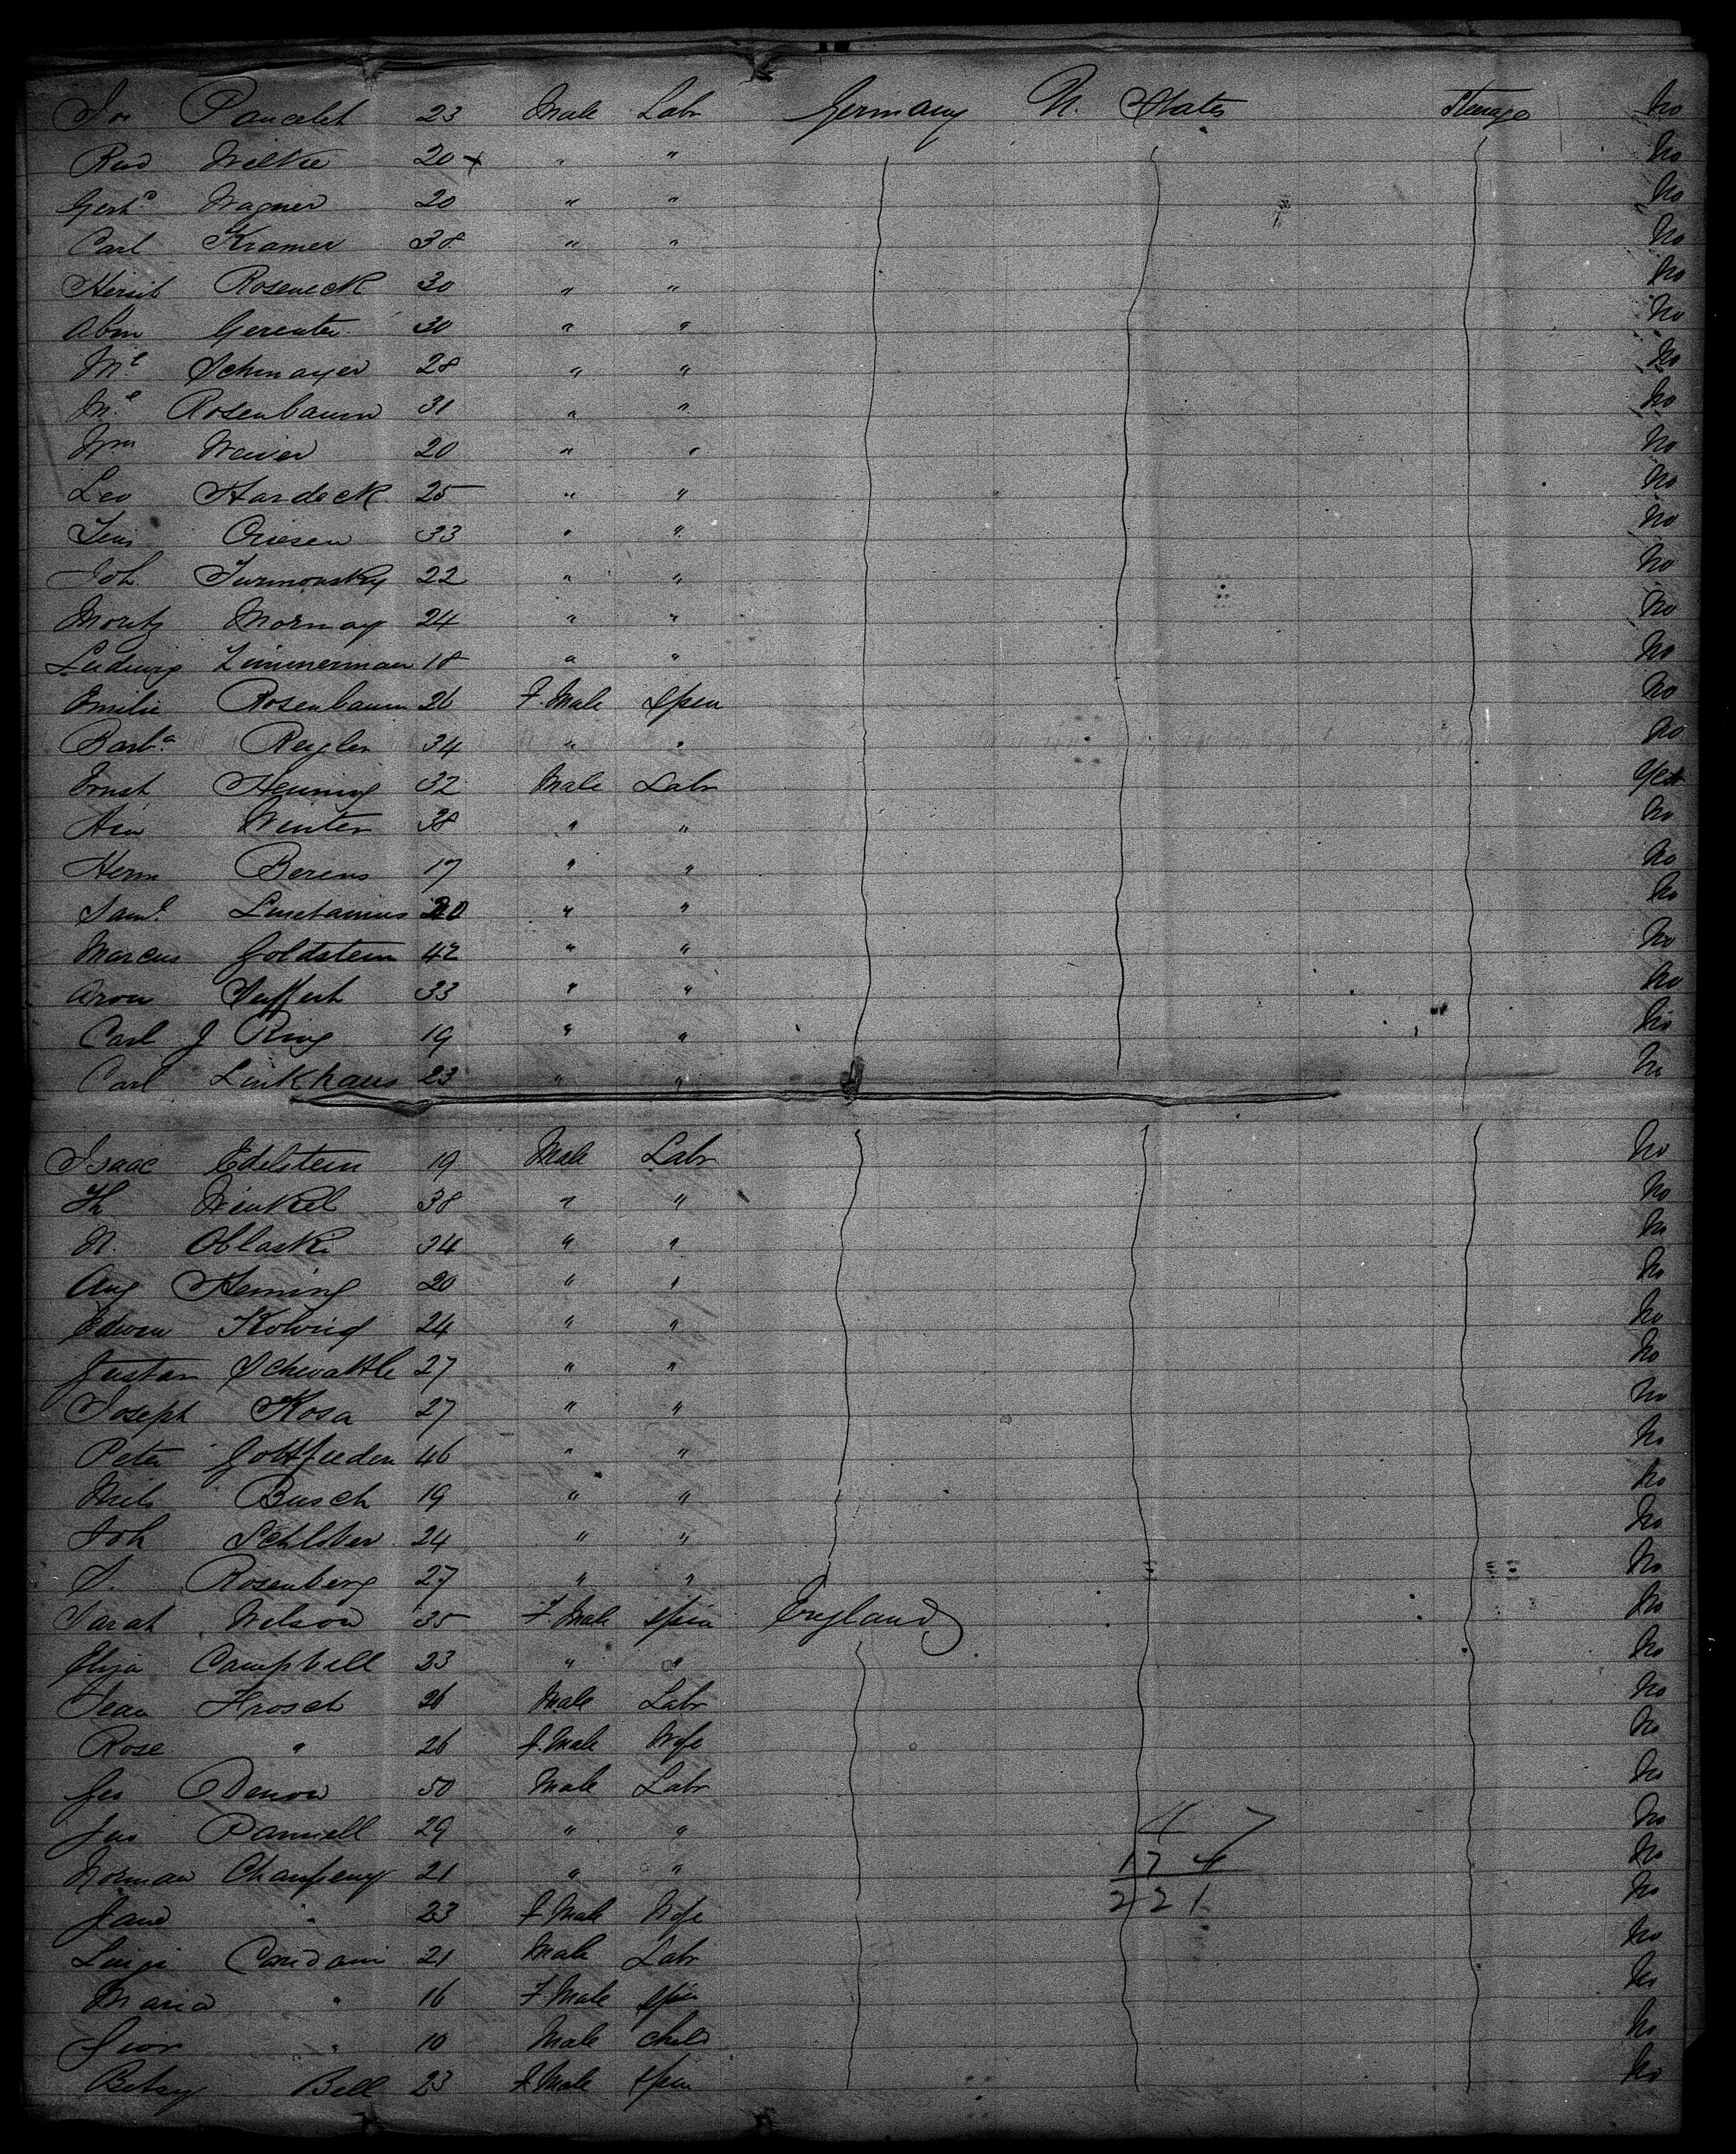 Jos Pancelet 23 Male Labr Germany U. States Steerage No
Rud Wilke 20 + " " No
Gerhd Wagner 20 " " No
Carl Kramer 38 " " No
Hersib Roseneck 30 " " No
Abm Gerenter 30 " " No
Ml Schmayer 28 " " No
Ml Rosenbaum 31 " " No
Wm Weiver 20 " " No
Leo Hardeck 25 " " No
Jens Oriesen 33 " " No
Joh Turmovsky 22 " " No
Moritz Mornay 24 " " No
Ludwig Zimmerman 18 " " No
Emilie Rosenbaum 26 F. Male Spin No
Barba Regler 34 " " No
Ernst Henning 32 Male Labr Yes
Hin Winter 38 " " No
Herm Berens 17 " " No
Saml 20 " " No
Marcus Goldstein 42 " " No
Aron Seiffert 33 " " No
Carl J Ring 19 " " No
Carl Linkhaus 23 " " No
Isaac Edelstein 19 Male Labr No
Th Winkel 38 " " No
N. Oblaski 34 " " No
Aug Heming 20 " " No
Edwin 24 " " No
Gustav Schwattle 27 " " No
Joseph Kosa 27 " " No
Peter Gottfreden 46 " " No
Nils Busch 19 " " No
Joh 24 " " No
S. Rosenberg 27 " " No
Sarah Wilson 35 F. Male Spin England No
Eliza Campbell 23 " " No
Jean Frosch 26 Male Labr No
Rose " 26 F. Male Wife No
Geo Denow 50 Male Labr No
Jno Panniell 29 " " 4 7 No
Norman Champeny 21 " " 17 4 No
Jane " 23 F. Male Wife 2 2 1 No
Luigi 21 Male Labr No
Maria " 16 F. Male Spin No
" 10 Male Child No
Betsy Bell 23 F. Male Spin No